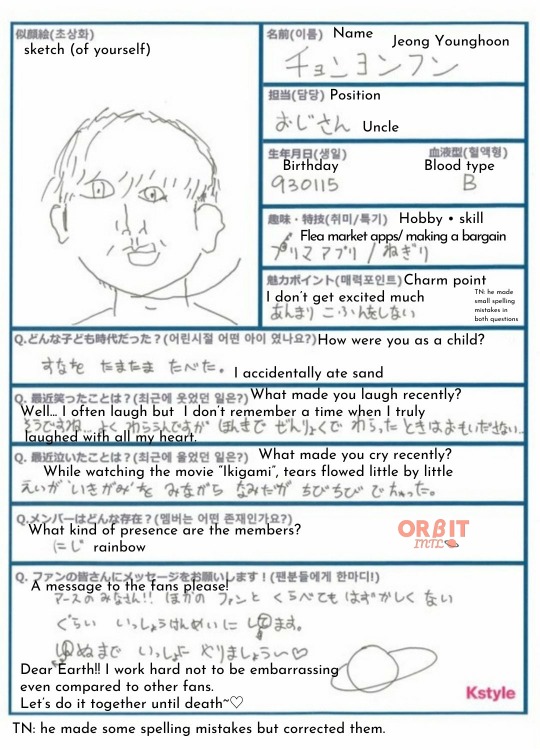 似顔絵(초상화)
sketch (of yourself)
名前(이름) Name
Jeong Younghoon
チョンヨンフン
担当(담당) Position
おじさん Uncle
生年月日(생일) 血液型(혈액형)
Birthday Blood type
930115 B
趣味・特技(취미/특기) Hobby • skill
Flea market apps/ making a bargain
フリマアプリ / ねぎり
魅力ポイント(매력포인트) Charm point
I don't get excited much
あんまり こふんをしない
TN: he made
small spelling
mistakes in
both questions
Q.どんな子ども時代だった？(어린시절 어떤 아이 였나요?) How were you as a child?
すなを たまたま たべた。 I accidentally ate sand
Q. 最近笑ったことは？(최근에 웃었던 일은?) What made you laugh recently?
Well... I often laugh but I don't remember a time when I truly
そうですね... よく わらうんですが ほんきで ぜんりょくで わらった ときは おもいだせない...
laughed with all my heart.
Q. 最近泣いたことは？(최근에 울었던 일은?) What made you cry recently?
While watching the movie "Ikigami", tears flowed little by little
えいが 'いきがみ'を みながら なみだが ちびちび でちゃった。
Q.メンバーはどんな存在？(멤버는 어떤 존재인가요?)
What kind of presence are the members?
にじ rainbow
ORBIT
INTL
Q. ファンの皆さんにメッセージをお願いします！(팬분들에게 한마디!)
A message to the fans please!
アースの みなさん!! ほかの ファンと くらべても はずかしく ない
ぐらい いっしょうけんめいに してます。
しぬまで いっしょに やりましょう~♡
Dear Earth!! I work hard not to be embarrassing
even compared to other fans.
Let's do it together until death~♡
Kstyle
TN: he made some spelling mistakes but corrected them.